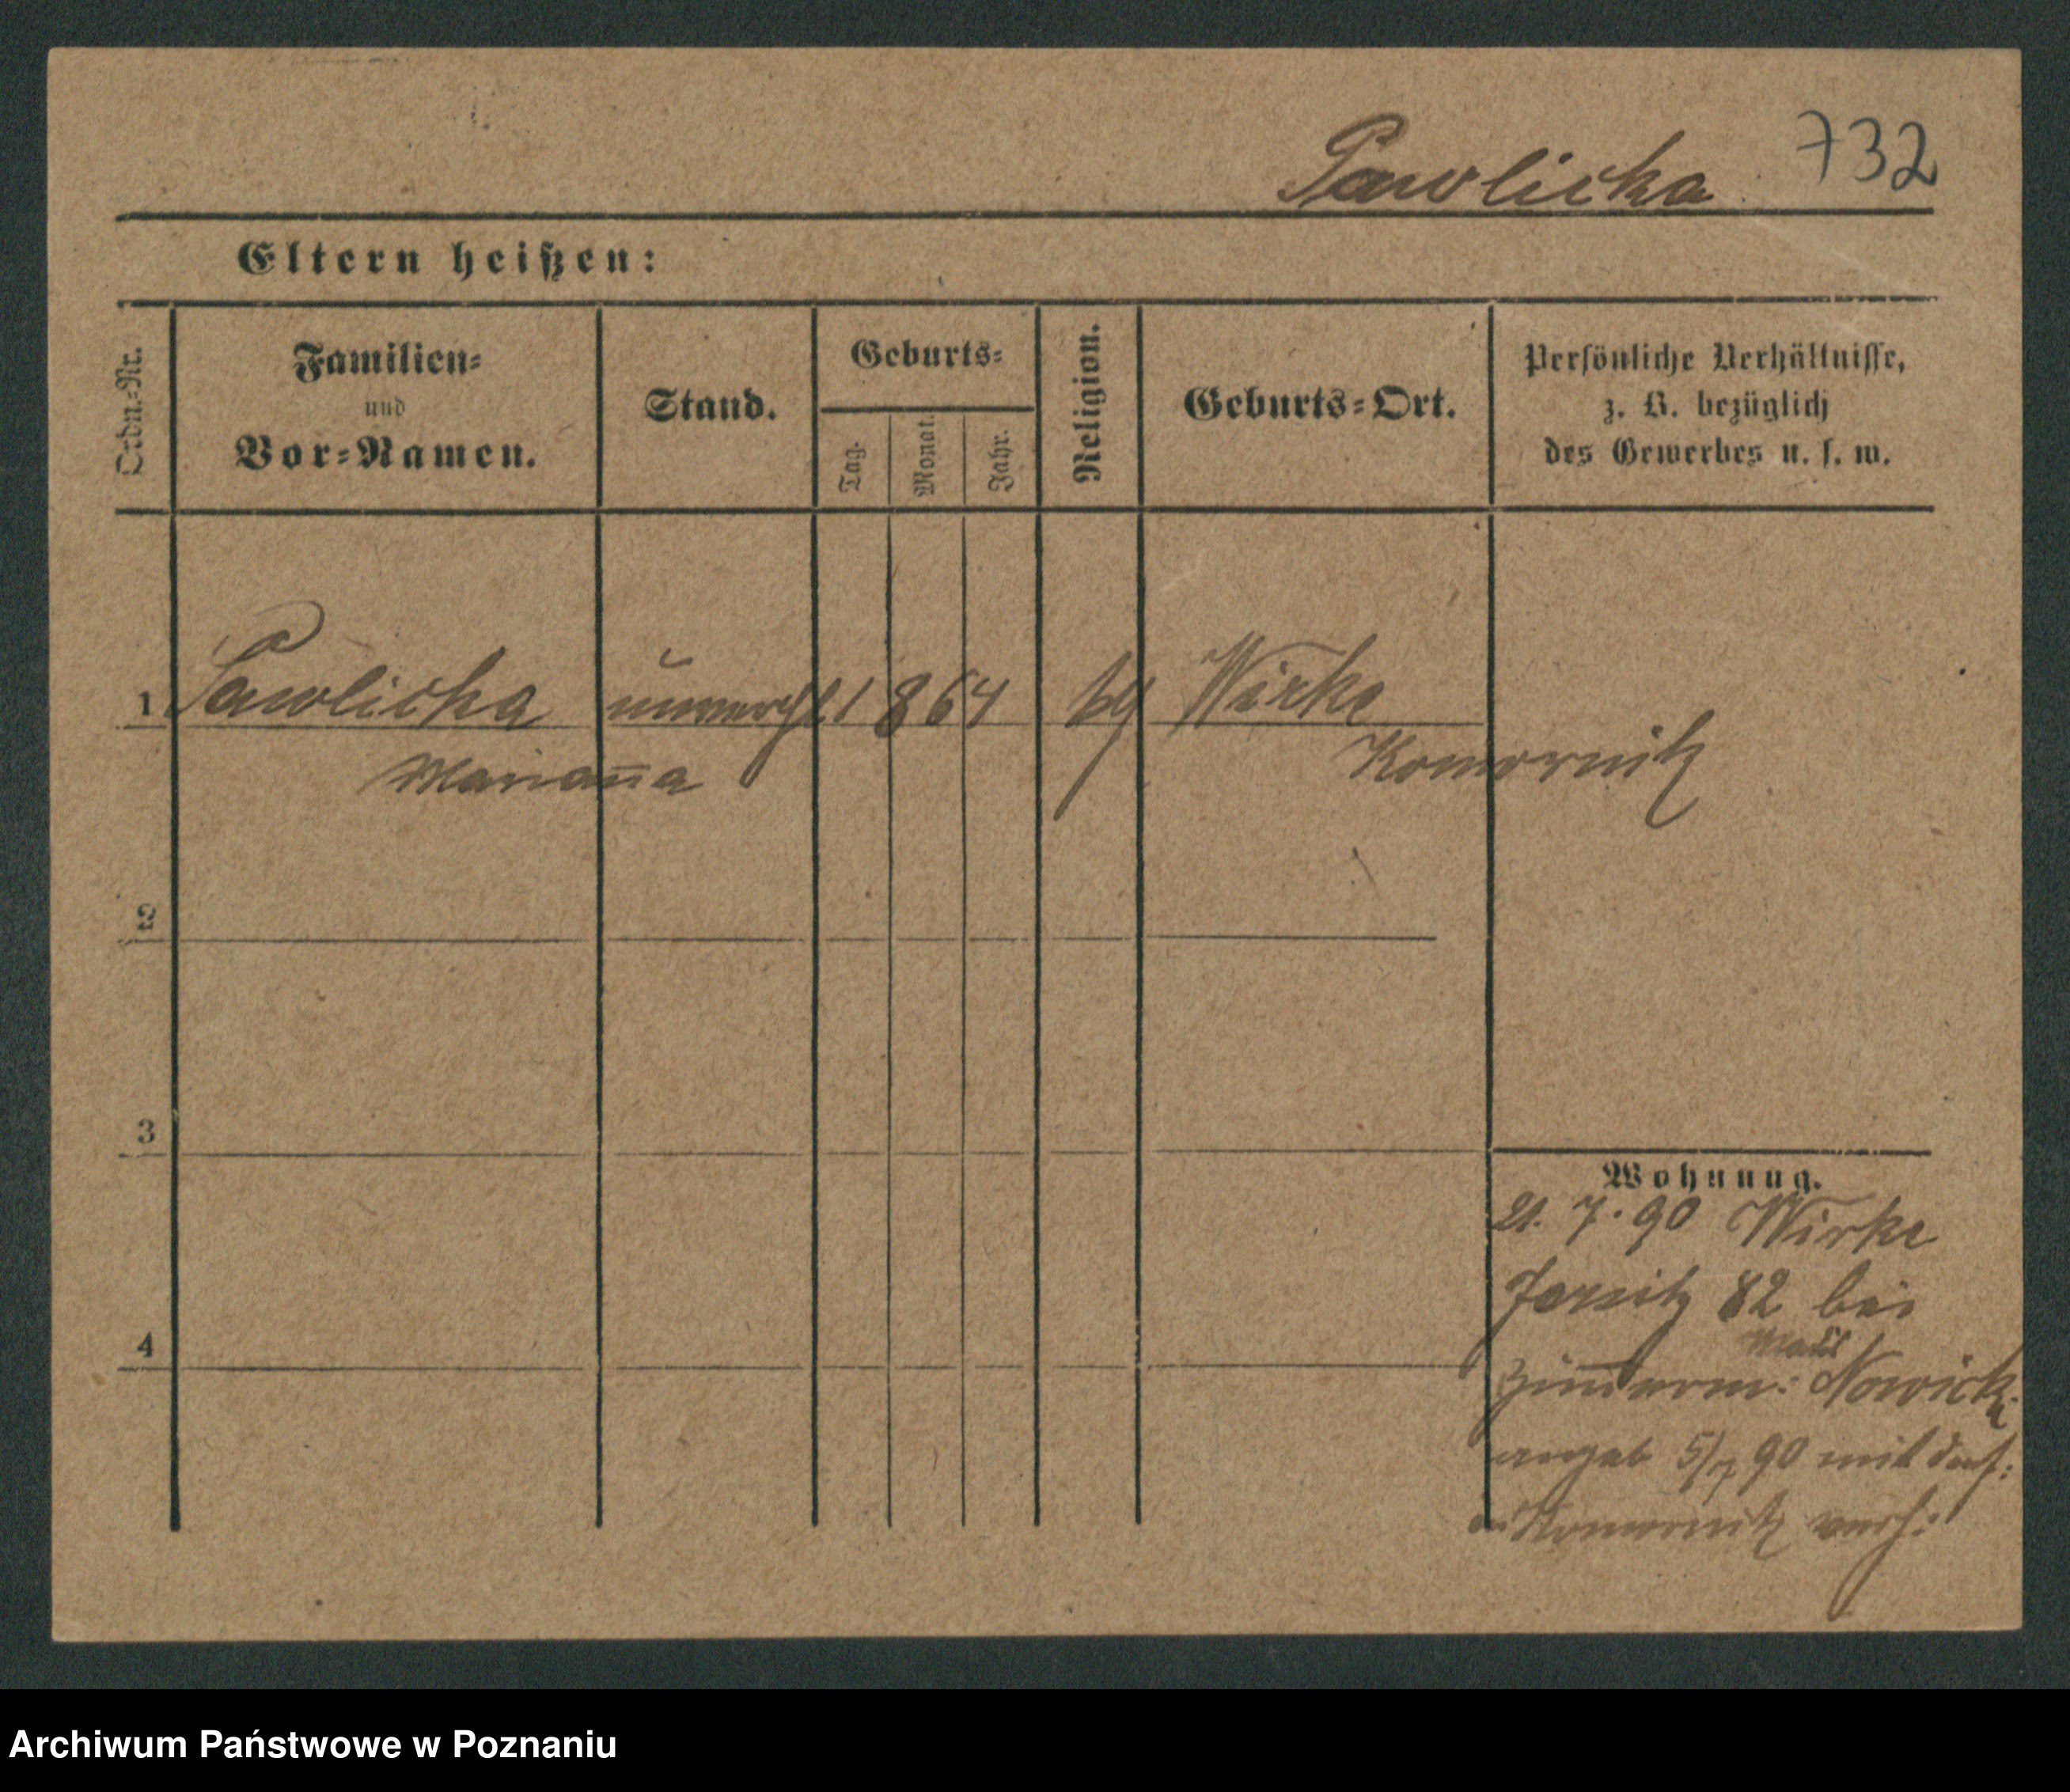 Pawlicka 732
Eltern heißen:
Ordn.-Nr.
Familien-
und
Vor-Namen.
Stand.
Geburts-
Tag.
Monat.
Jahr.
Religion.
Geburts-Ort.
Persönliche Verhältnisse,
z. B. bezüglich
des Gewerbes u. s. w.
1 Pawlicka unverehl 1 8 64 kth Wirke
Marianna Komornik
2
3
4
Wohnung.
21. 7. 90 Wirke
Jersitz 82 bei
Zimmerm: Nowicki
angeb 5/7 90 mit
Komornik
Archiwum Państwowe w Poznaniu